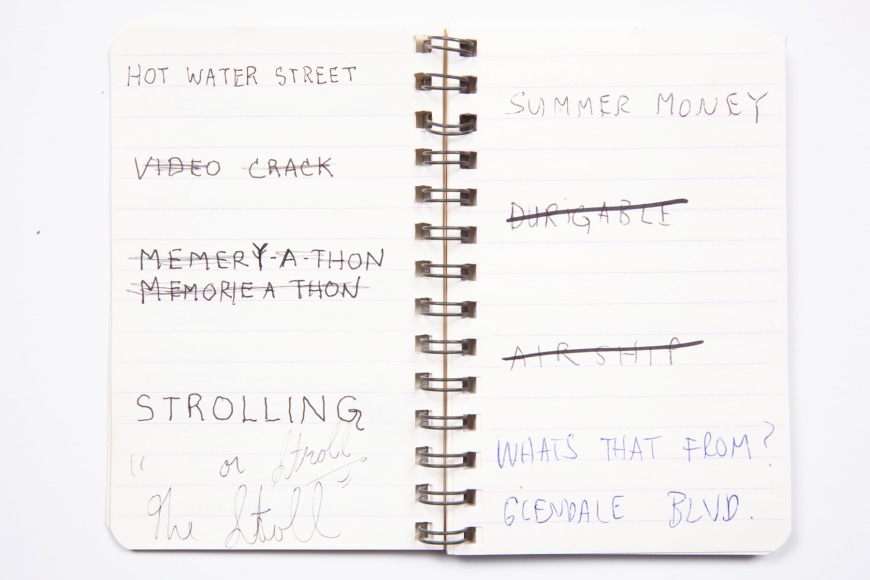 HOT WATER STREET
VIDEO CRACK
MEMERY-A-THON
MEMORIE A THON
STROLLING
" or Stroll "
The Stroll
SUMMER MONEY
DURIGABLE
AIRSHIP
WHATS THAT FROM?
GLENDALE BLVD.